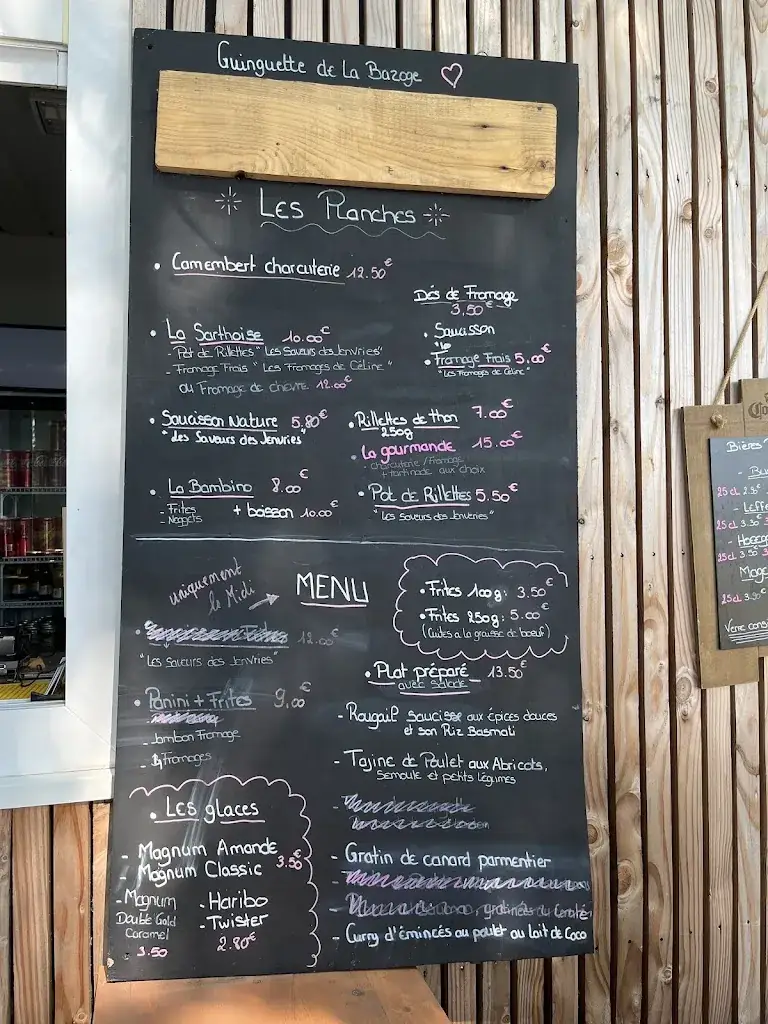 Guinguette de La Bazoge
Les Planches
• Camembert charcuterie 12.50€
Dés de Fromage
3,50€
• Saucisson
• Fromage Frais 5,00€
"Les Fromages de Céline"
• La Sarthoise 10.00€
- Pot de Rillettes "Les Saveurs des Jenvries"
- Fromage Frais "Les Fromages de Céline"
ou Fromage de chèvre 12.00€
• Saucisson Nature 5,80€
"Les Saveurs des Jenvries"
• Rillettes de thon 7.00€
250g
• La gourmande 15.00€
- charcuterie / Fromage
+ tartinade aux choix
• La Bambino 8.00€
- Frites
- Nuggets
+ boisson 10.00€
• Pot de Rillettes 5.50€
"Les Saveurs des Jenvries"
uniquement
le Midi
MENU
• Frites 100g: 3.50€
• Frites 250g: 5.00€
(Cuites a la graisse de boeuf)
12.00€
"Les Saveurs des Jenvries"
• Panini + Frites 9,00€
- Jambon Fromage
- 4 Fromages
• Plat préparé 13.50€
avec salade
- Rougail Saucisse aux épices douces
et son Riz Basmati
- Tajine de Poulet aux Abricots,
Semoule et petits légumes
- Gratin de canard parmentier
- Curry d'émincés au poulet au lait de Coco
• Les glaces
- Magnum Amande
- Magnum Classic
3.50€
- Magnum
Double Gold
Caramel
3.50
- Haribo
- Twister
2.80€
Bières
25cl
- Leffe
25cl 3.50€
25cl 3.50€
25cl 3.50€